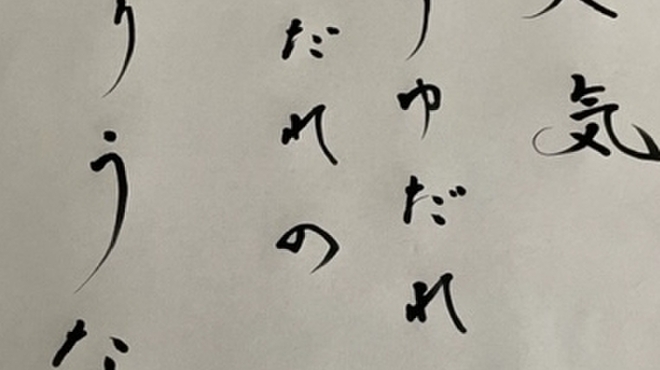 気
ゆだれ
だれの
うな